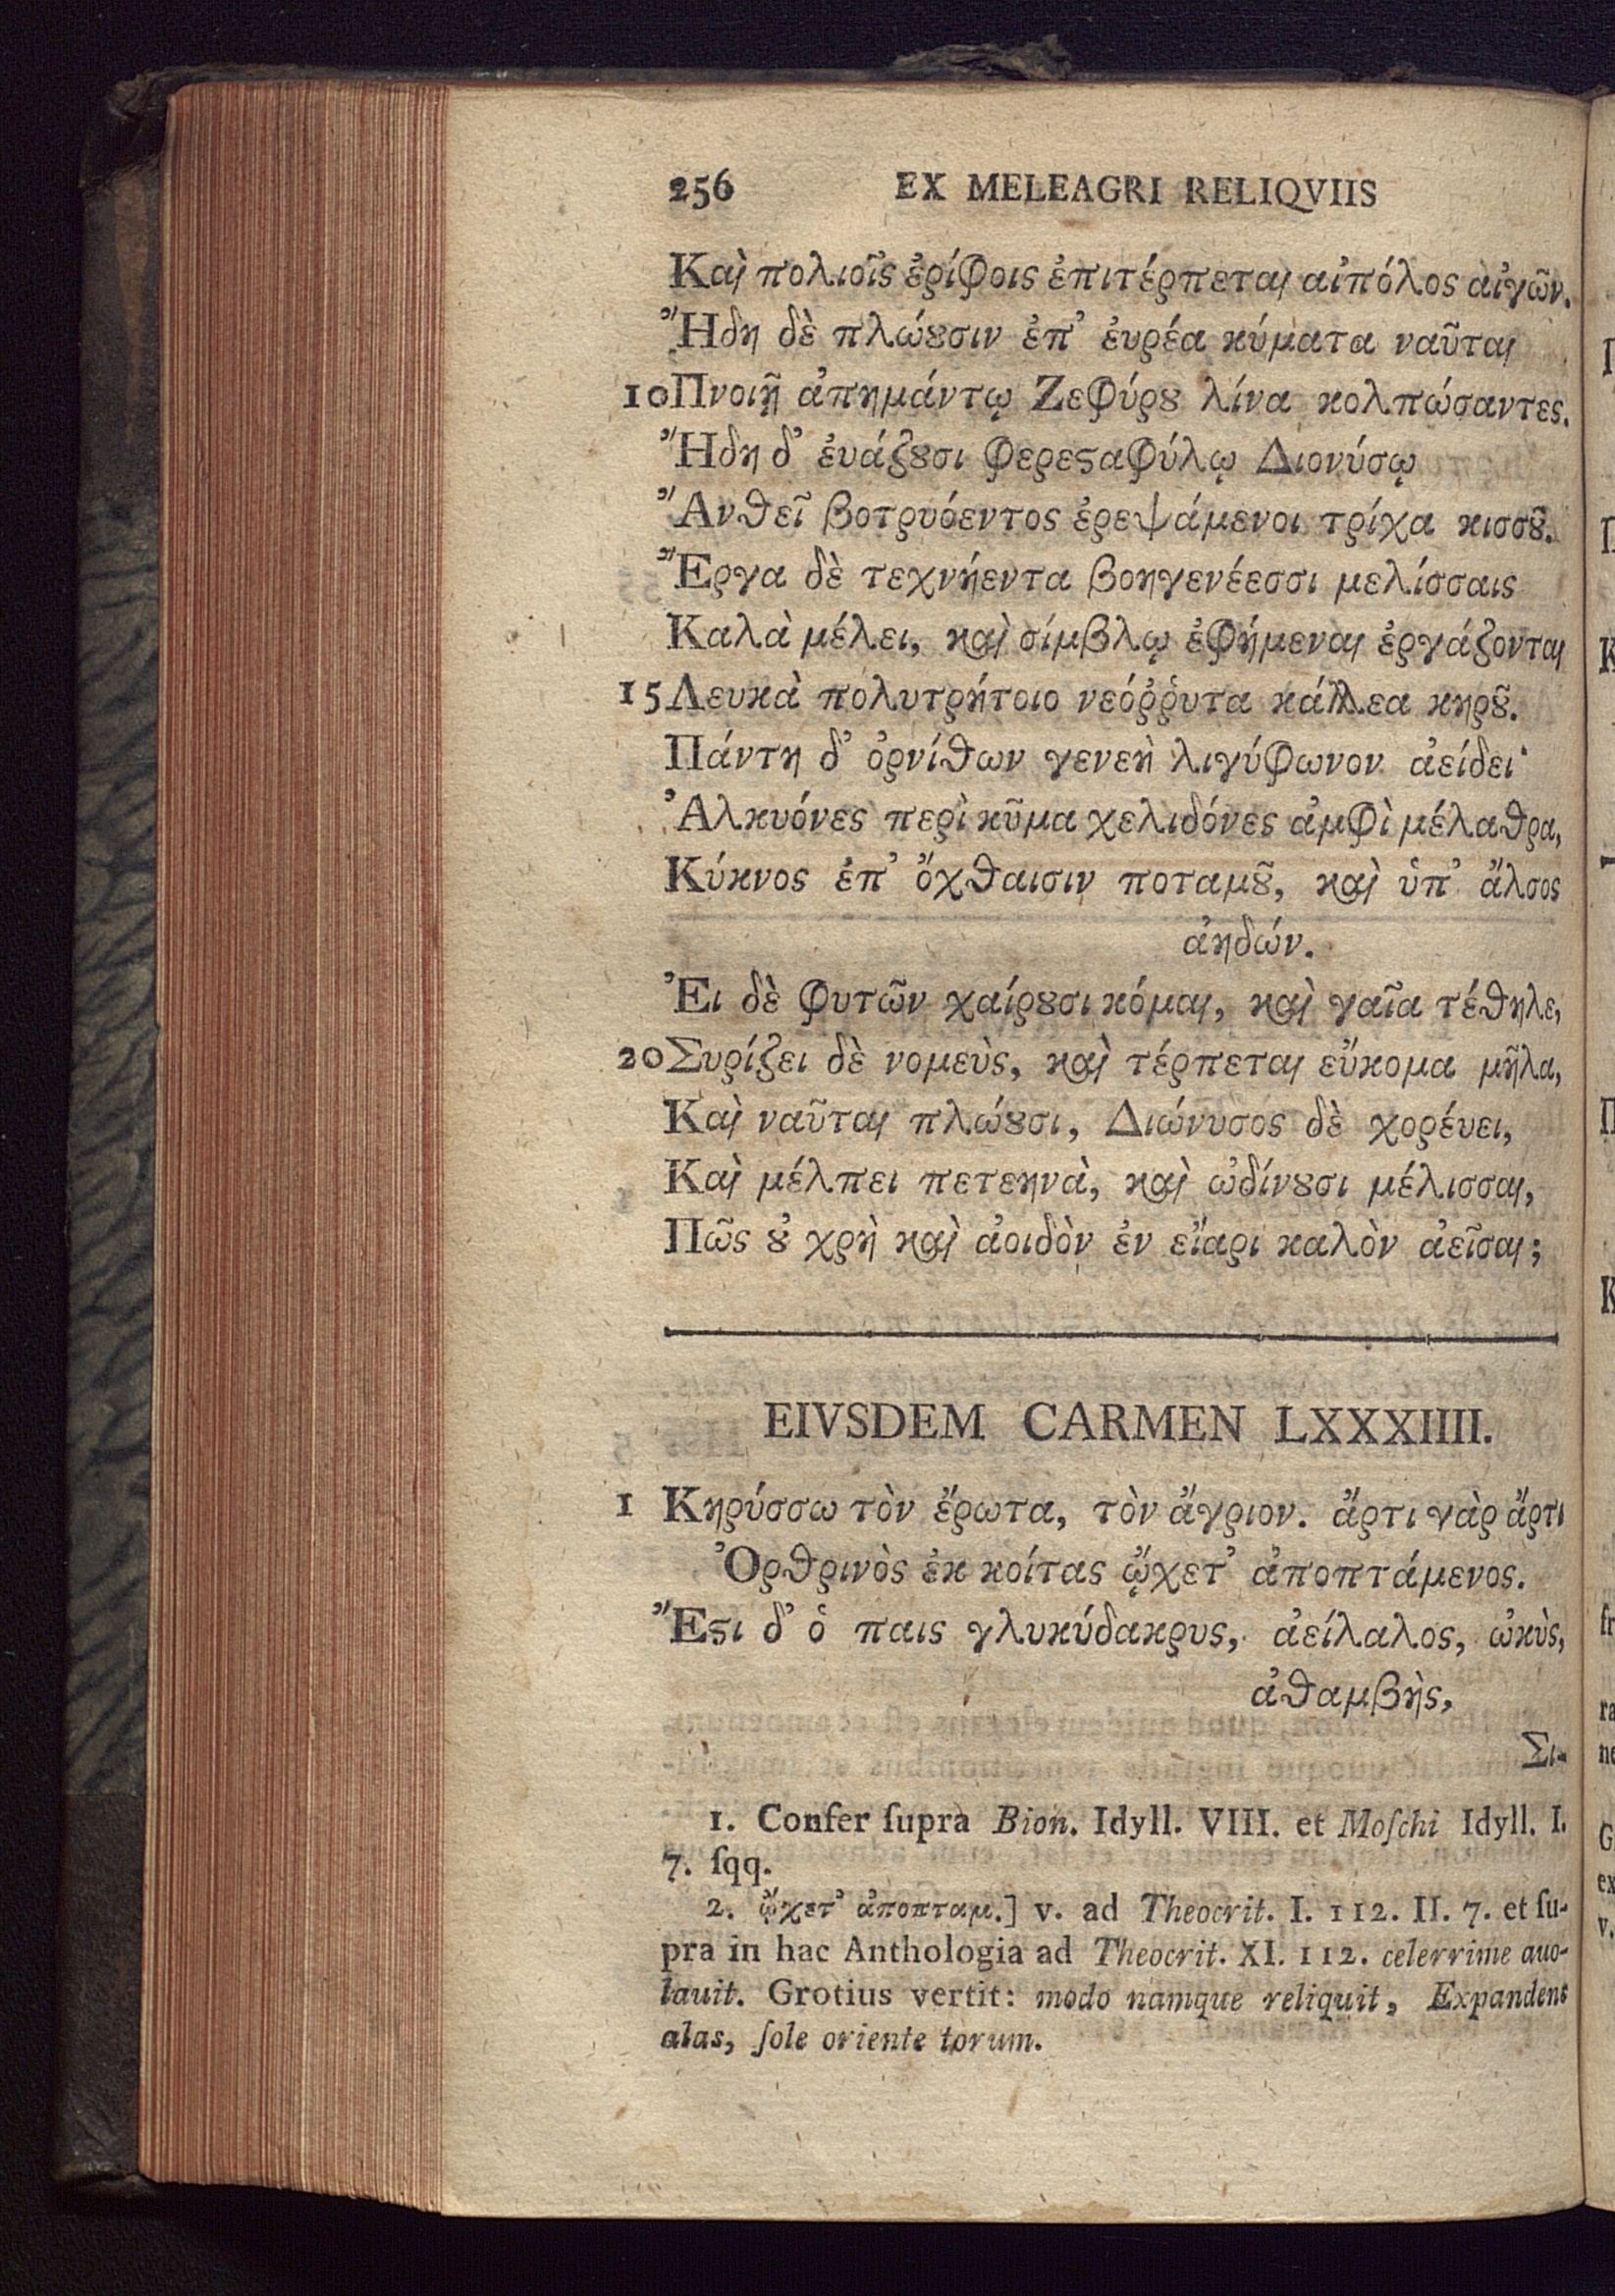 256 EX MELEAGRI RELIQVIIS
Καὶ πολιοῖς ἐρίφοις ἐπιτέρπεται αἰπόλος αἰγῶν.
Ἤδη δὲ πλώȣσιν ἐπ' ἐυρέα κύματα ναῦται
10 Πνοιῇ ἀπημάντῳ Ζεφύρȣ λίνα κολπώσαντες.
Ἤδη δ' ἐυάζȣσι φερεϛαφύλῳ Διονύσῳ
Ἄνθεῖ βοτρυόεντος ἐρεψάμενοι τρίχα κισσȣ͂.
Ἔργα δὲ τεχνήεντα βοηγενέεσσι μελίσσαις
Καλὰ μέλει, καὶ σίμβλῳ ἐφήμεναι ἐργάζονται
15 Λευκὰ πολυτρήτοιο νεόῤῥυτα κάλλεα κηρȣ͂.
Πάντη δ' ὀρνίθων γενεὴ λιγύφωνον ἀείδει·
Ἀλκυόνες περὶ κῦμα χελιδόνες ἀμφὶ μέλαθρα,
Κύκνος ἐπ' ὄχθαισιν ποταμȣ͂, καὶ ὑπ' ἄλσος
ἀηδών.
Ἐι δὲ φυτῶν χαίρȣσι κόμαι, καὶ γαῖα τέθηλε,
20 Συρίζει δὲ νομεὺς, καὶ τέρπεται εὔκομα μῆλα,
Καὶ ναῦται πλώȣσι, Διώνυσος δὲ χορέυει,
Καὶ μέλπει πετεηνὰ, καὶ ὠδίνȣσι μέλισσαι,
Πῶς ȣ̓ χρὴ καὶ ἀοιδὸν ἐν εἴαρι καλὸν ἀεῖσαι;
EIVSDEM CARMEN LXXXIIII.
1 Κηρύσσω τὸν ἔρωτα, τὸν ἄγριον. ἄρτι γὰρ ἄρτι
Ὀρθρινὸς ἐκ κοίτας ᾤχετ' ἀποπτάμενος.
Ἔϛι δ' ὁ παις γλυκύδακρυς, ἀείλαλος, ὠκὺς,
ἀθαμβὴς,
Σι-
1. Confer ſupra Bion. Idyll. VIII. et Moſchi Idyll. I.
7. ſqq.
2. ᾤχετ' ἀποπταμ.] v. ad Theocrit. I. 112. II. 7. et ſu-
pra in hac Anthologia ad Theocrit. XI. 112. celerrime auo-
lauit. Grotius vertit: modo namque reliquit, Expandens
alas, ſole oriente torum.